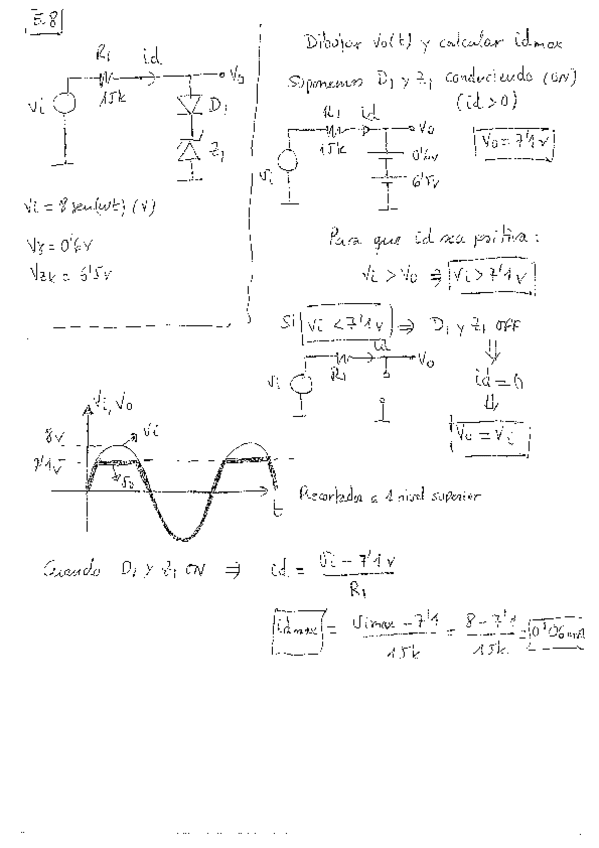 E.8
R1 id
Vo
15k
Vi
D1
Z1
Vi = 8 sen(wt) (V)
Vγ = 0'6V
VZK = 6'5V
Dibujar Vo(t) y calcular idmax
Suponemos D1 y Z1 conduciendo (ON)
(id > 0)
R1 id
Vo
15k
0'6V
Vi
6'5V
Vo = 7'1V
Para que id sea positiva:
Vi > Vo ⇒ Vi > 7'1V
Si Vi < 7'1V ⇒ D1 y Z1 OFF
⇓
id
Vo
R1
Vi
id = 0
⇓
Vo = Vi
Vi, Vo
8V
Vi
7'1V
Vo
t
Recortador a 1 nivel superior
Cuando D1 y Z1 ON ⇒ id = Vi - 7'1V / R1
idmax = Vimax - 7'1 / 15k = 8 - 7'1 / 15k = 0'06mA